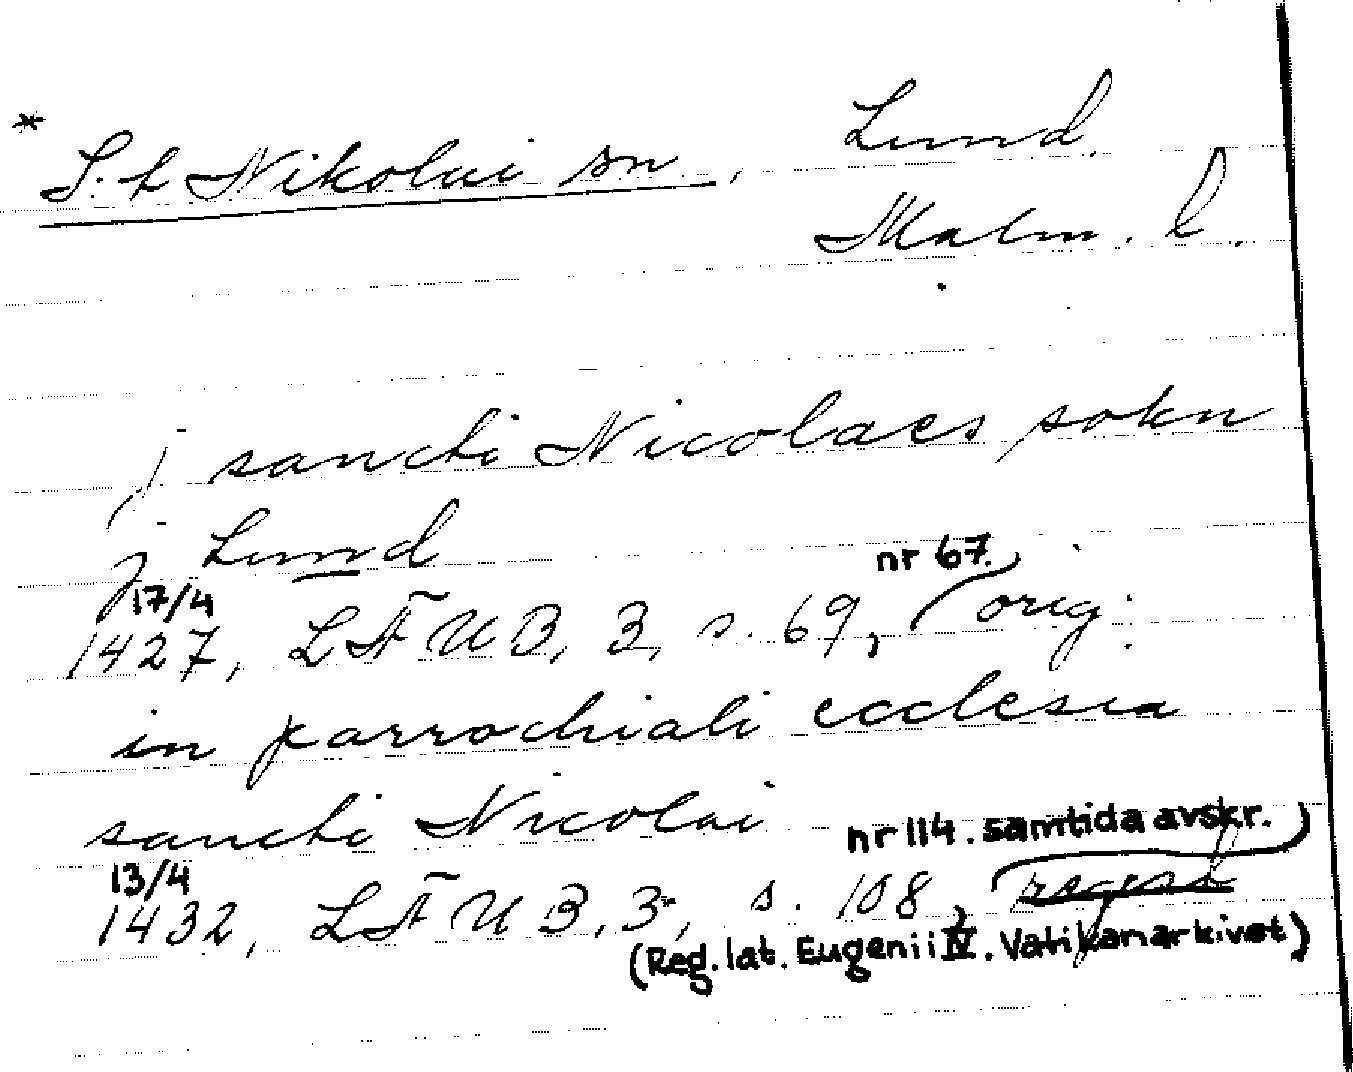 * S:t Nikolai sn, Lund.
Malm. l.
j sancti Nicolaes sokn
j Lund
17/4 nr 67.
1427, LÄUB, 3, s. 69, orig.
in parrochiali ecclesia
sancti Nicolai
13/4 nr 114. samtida avskr.
1432, LÄUB, 3, s. 108, regest
(Reg. lat. Eugenii IV. Vatikanarkivet)